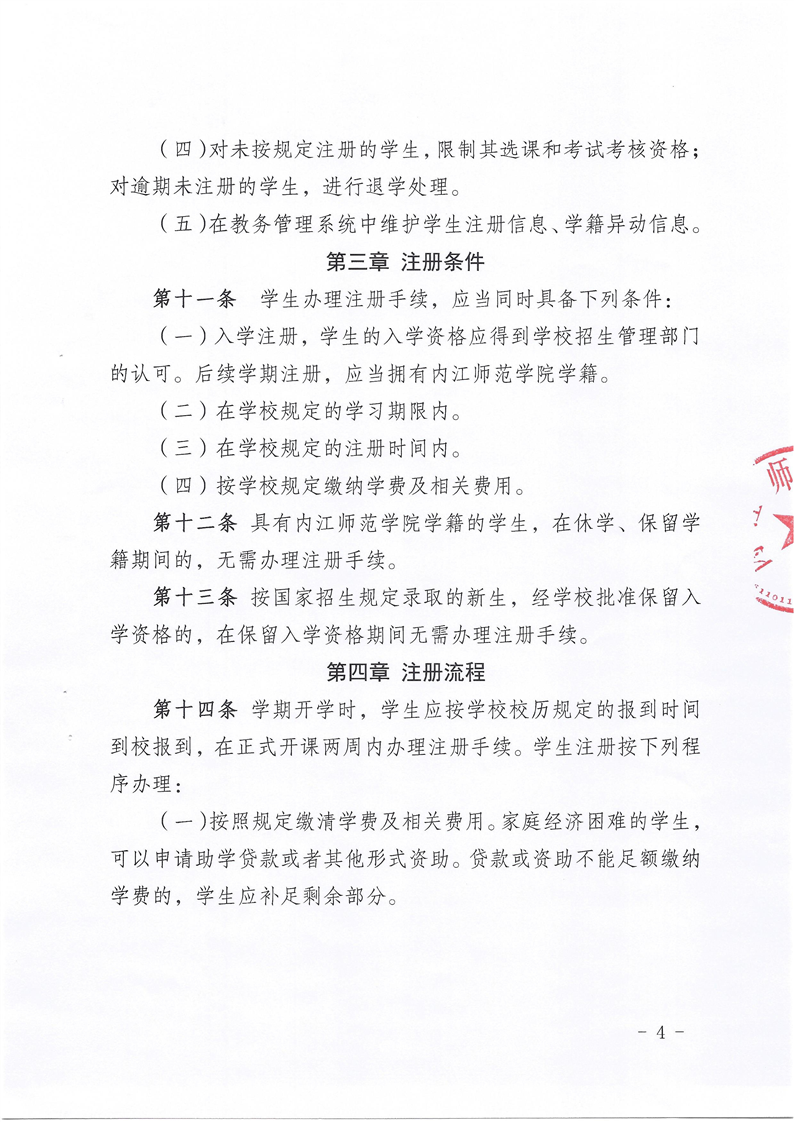 （四）对未按规定注册的学生，限制其选课和考试考核资格；
对逾期未注册的学生，进行退学处理。
（五）在教务管理系统中维护学生注册信息、学籍异动信息。
第三章 注册条件
第十一条 学生办理注册手续，应当同时具备下列条件：
（一）入学注册，学生的入学资格应得到学校招生管理部门
的认可。后续学期注册，应当拥有内江师范学院学籍。
（二）在学校规定的学习期限内。
（三）在学校规定的注册时间内。
（四）按学校规定缴纳学费及相关费用。
第十二条 具有内江师范学院学籍的学生，在休学、保留学
籍期间的，无需办理注册手续。
第十三条 按国家招生规定录取的新生，经学校批准保留入
学资格的，在保留入学资格期间无需办理注册手续。
第四章 注册流程
第十四条 学期开学时，学生应按学校校历规定的报到时间
到校报到，在正式开课两周内办理注册手续。学生注册按下列程
序办理：
（一）按照规定缴清学费及相关费用。家庭经济困难的学生，
可以申请助学贷款或者其他形式资助。贷款或资助不能足额缴纳
学费的，学生应补足剩余部分。
师
11011
- 4 -